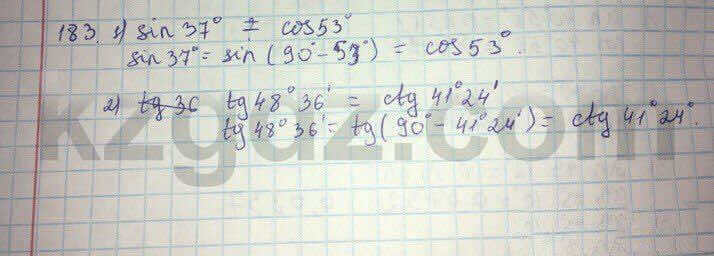 183. 1) sin 37° = cos 53°
sin 37° = sin (90° - 53°) = cos 53°.
2) tg 36 tg 48° 36' = ctg 41° 24'
tg 48° 36' = tg (90° - 41° 24') = ctg 41° 24°.
kzgdz.com